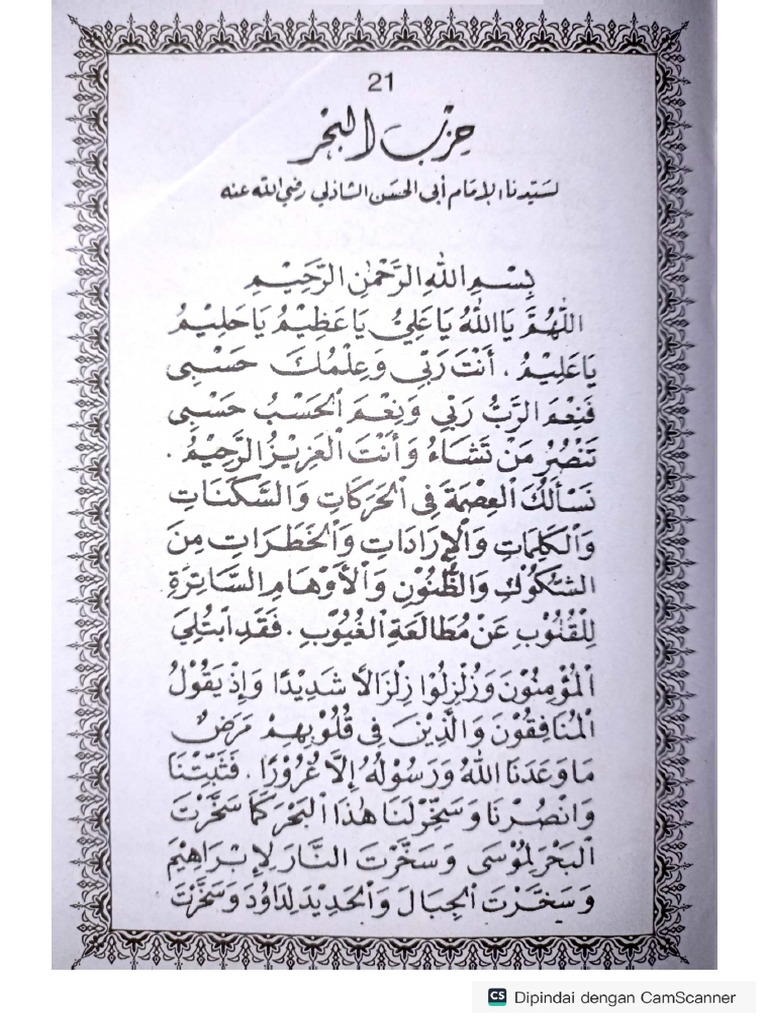 21
حِزْبُ الْبَحْرِ
لسَيّدنا الإمَام أبي الحسَن الشاذلي رضي الله عنه
بِسْمِ اللهِ الرَّحْمٰنِ الرَّحِيْمِ
اَللّٰهُمَّ يَا اَللهُ يَا عَلِيُّ يَا عَظِيْمُ يَا حَلِيْمُ
يَا عَلِيْمُ . أَنْتَ رَبِّي وَعِلْمُكَ حَسْبِى
فَنِعْمَ الرَّبُّ رَبِّي وَنِعْمَ الْحَسْبُ حَسْبِى
تَنْصُرُ مَنْ تَشَاءُ وَأَنْتَ الْعَزِيْزُ الرَّحِيْمُ .
نَسْأَلُكَ الْعِصْمَةَ فِى الْحَرَكَاتِ وَالسَّكَنَاتِ
وَالْكَلِمَاتِ وَالْإِرَادَاتِ وَالْخَطَرَاتِ مِنَ
الشُّكُوْكِ وَالظُّنُوْنِ وَالْأَوْهَامِ السَّاتِرَةِ
لِلْقُلُوْبِ عَنْ مُطَالَعَةِ الْغُيُوْبِ . فَقَدِ ابْتُلِيَ
الْمُؤْمِنُوْنَ وَزُلْزِلُوْا زِلْزَالًا شَدِيْدًا وَإِذْ يَقُوْلُ
الْمُنَافِقُوْنَ وَالَّذِيْنَ فِى قُلُوْبِهِمْ مَرَضٌ
مَا وَعَدَنَا اللهُ وَرَسُوْلُهُ إِلَّا غُرُوْرًا . فَثَبِّتْنَا
وَانْصُرْنَا وَسَخِّرْ لَنَا هٰذَا الْبَحْرَ كَمَا سَخَّرْتَ
الْبَحْرَ لِمُوْسَى وَسَخَّرْتَ النَّارَ لِإِبْرَاهِيْمَ
وَسَخَّرْتَ الْجِبَالَ وَالْحَدِيْدَ لِدَاوُدَ وَسَخَّرْتَ
CS Dipindai dengan CamScanner